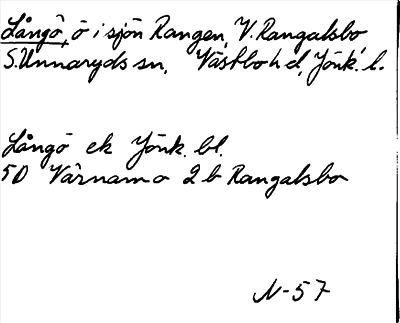 Långö, ö i sjön Rangen, V. Rangalsbo
S. Unnaryds sn, Västbo hd, Jönk. l.
Långö ek Jönk. bl.
5D Värnamo 2b Rangalsbo
N-57